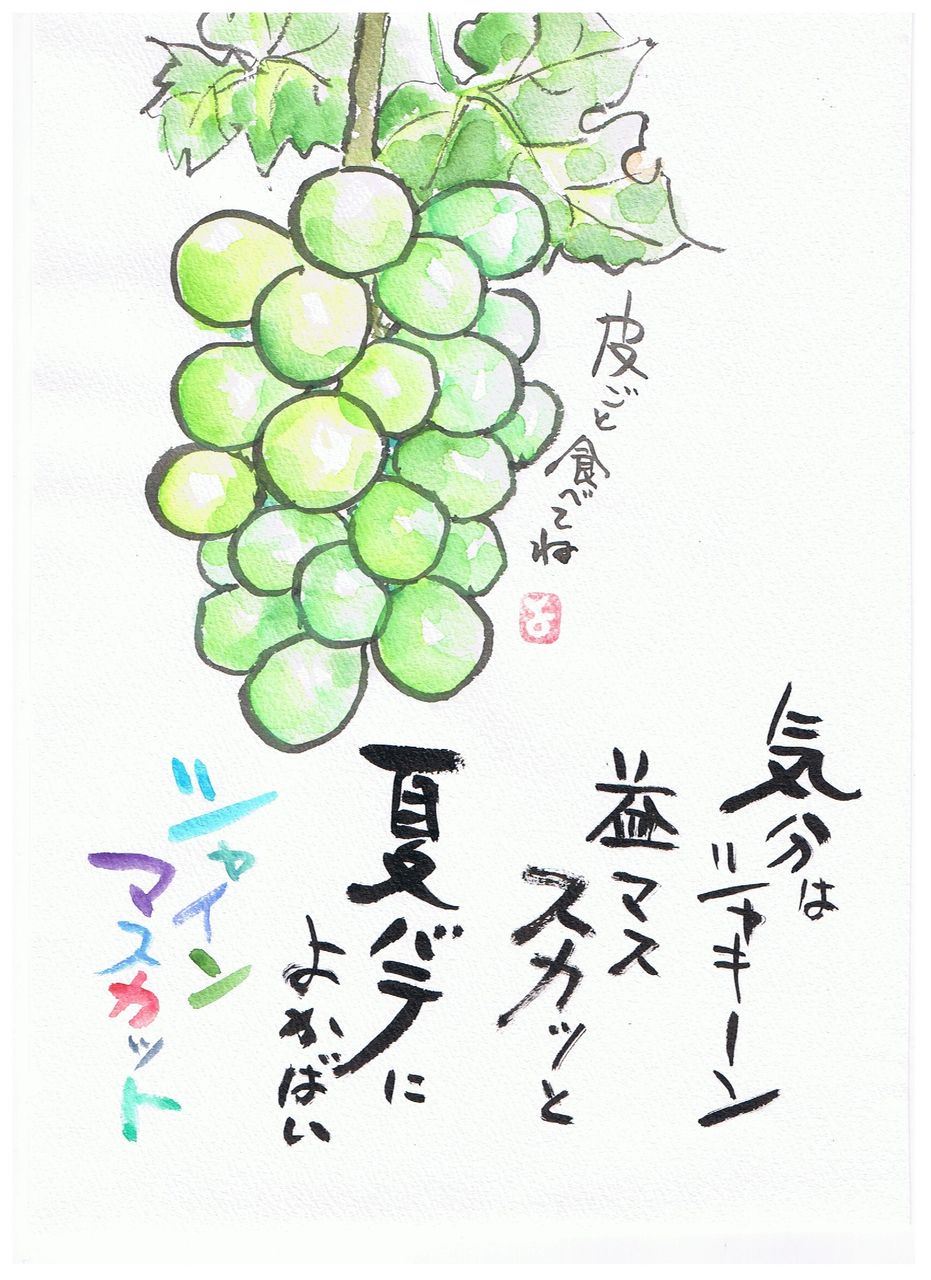 皮ごと食べてね
気分は
シャキーン
益マス
スカッと
夏バテに
よかばい
シャイン
マスカット